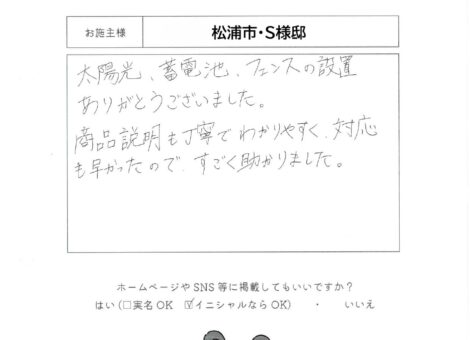 お施主様 松浦市・S様邸
太陽光、蓄電池、フェンスの設置
ありがとうございました。
商品説明も丁寧でわかりやすく、対応
も早かったので、すごく助かりました。
ホームページやSNS等に掲載してもいいですか？
はい（□実名OK ☑イニシャルならOK） ・ いいえ